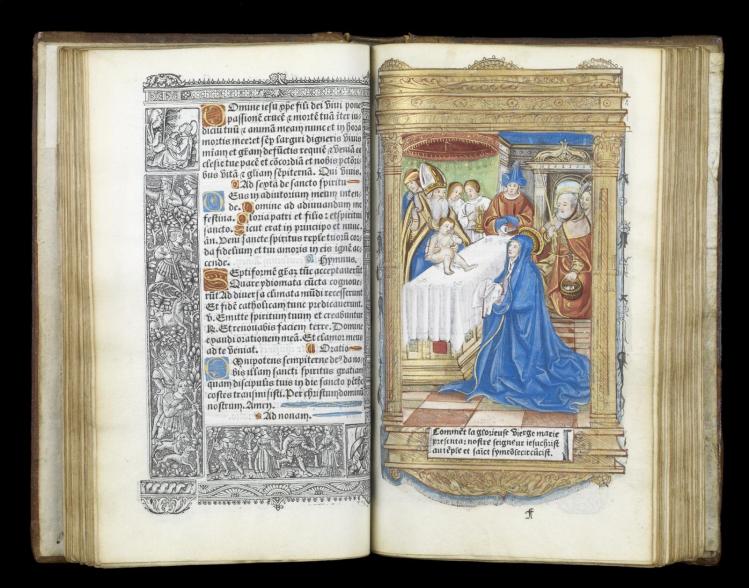 Domine iesu xp̄e fili dei viui pone
passionē crucē ⁊ mortē tuā īter iu-
diciū tuū ⁊ animā meam nunc et in hora
mortis mee: et
largiri digneris viuis
miam et gr̄am defūctis requiē ⁊ veniā ec
clesie tue pacē et cōcordiā et nobis pctōri-
bus vitā ⁊ gl'iam sēpiternā. Qui viuis.
Ad sextā de sancto spiritu
Deus in adiutorium meum inten-
de. Domine ad adiuuandum me
festina. Gloria patri et filio: et spiritui
sancto. Sicut erat in principio et nunc
ān. Veni sancte spiritus reple tuorū cor-
da fidelium et tui amoris in eis ignē ac-
cende. Hymnus.
Septiformē gr̄am tūc acceptauerūt
Quare ydiomata cūcta cognoue-
rūt Ad diuersa climata mūdi recesserunt
Et fidē catholicam tunc predicauerunt.
v. Emitte spiritum tuum et creabuntur
R. Et renouabis faciem terre. Domine
exaudi orationem meā. Et clamor meus
ad te veniat. Oratio
Omnipotens sempiterne de⁹ da no-
bis illam sancti spiritus gratiam
quam discipulis tuis in die sancto pēthe
costes transmisisti. Per christum dominū
nostrum. Amen.
Ad nonam.
Commēt la glorieuse vierge marie
presenta: nostre seigneur iesuchrist
au tēple et saīct